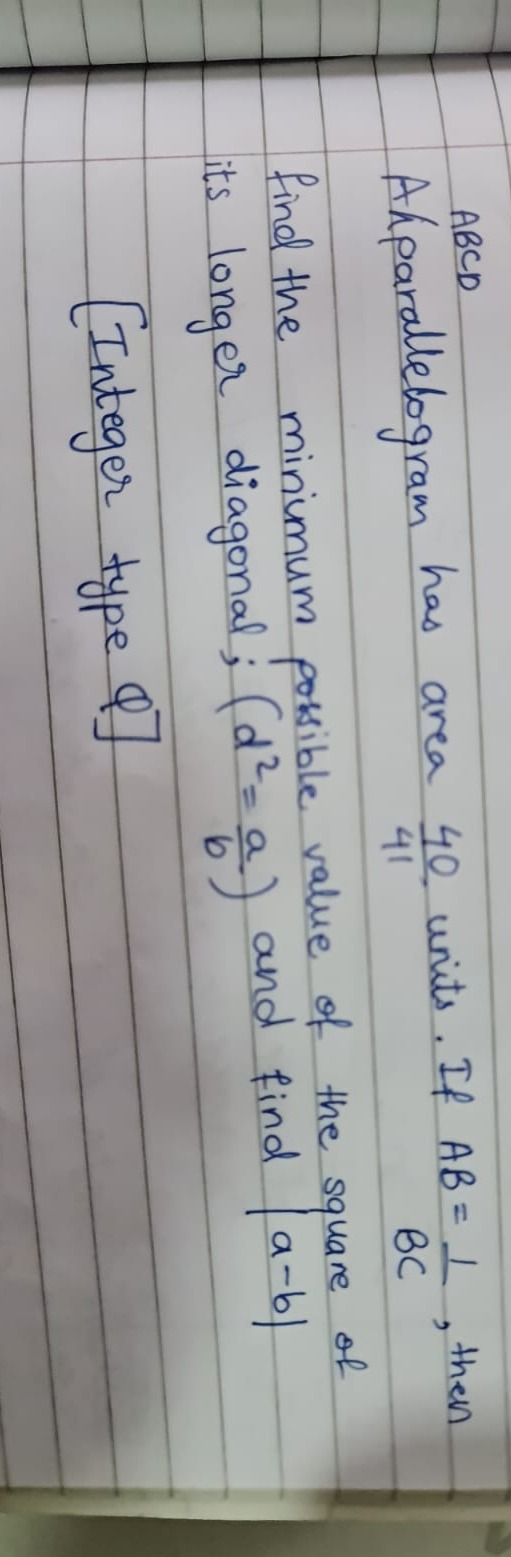 ABCD
A parallelogram has area 40/41 units. If AB = 1/BC, then
find the minimum possible value of the square of
its longer diagonal; (d² = a/b) and find |a-b|
[Integer type Q]